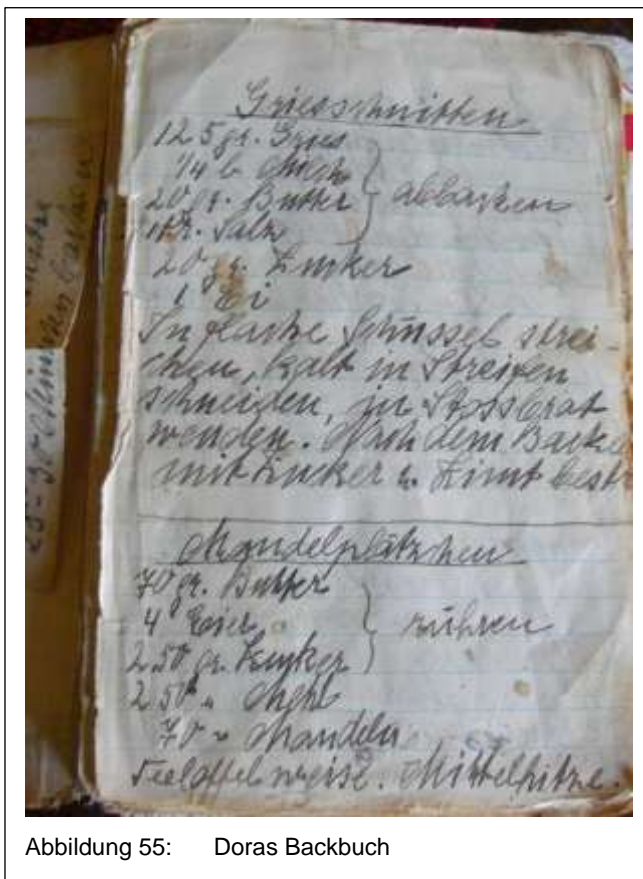 Griesschnitten
125 gr. Gries
1/4 l. Milch
20 gr. Butter abbacken
Salz
20 gr. Zucker
1 Ei
In flache Schüssel strei-
chen, kalt in Streifen
schneiden, in Stossbrot
wenden. Nach dem Backe
mit Zucker u. Zimt best
Mandelplätzchen
70 gr. Butter
4 Eier rühren
250 gr. Zucker
250 " Mehl
70 " Mandeln
Teelöffelweise. Mittelhitze.
25-30
Abbildung 55: Doras Backbuch